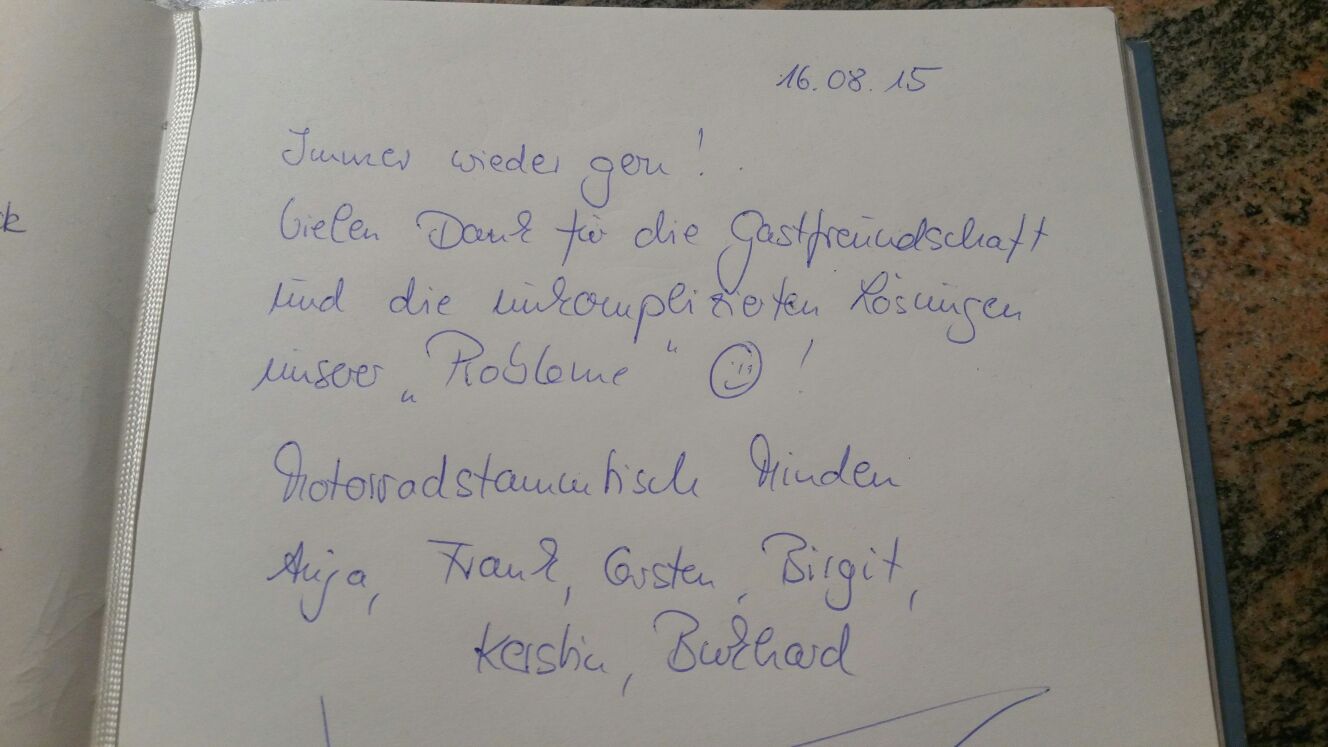 16.08.15
Immer wieder gern!
Vielen Dank für die Gastfreundschaft
und die unkomplizierten Lösungen
unserer „Probleme“ !
Motorradstammtisch Minden
Anja, Frank, Carsten, Birgit,
Kerstin, Burkhard